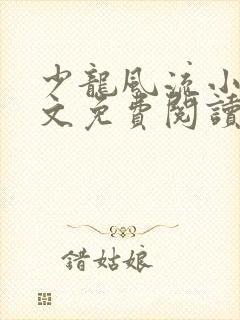 少龍風流小
文免費閱讀
錯姑娘